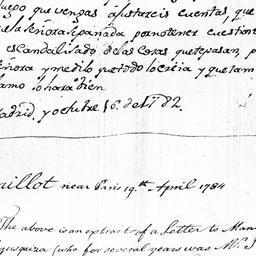 que vengas ajustareis cuentas, que
la Señora Spañada por no tener cuestion
escandalizado de las cosas que te pasan, p
eñora y me dijo que todo lo creia y que tam
amo lo hara bien
Madrid, y octubre 16. de 1782.
uillot near Paris 19.th April 1784
The above is an extract of a Letter to Man
quiza (who for several years was Mr. J